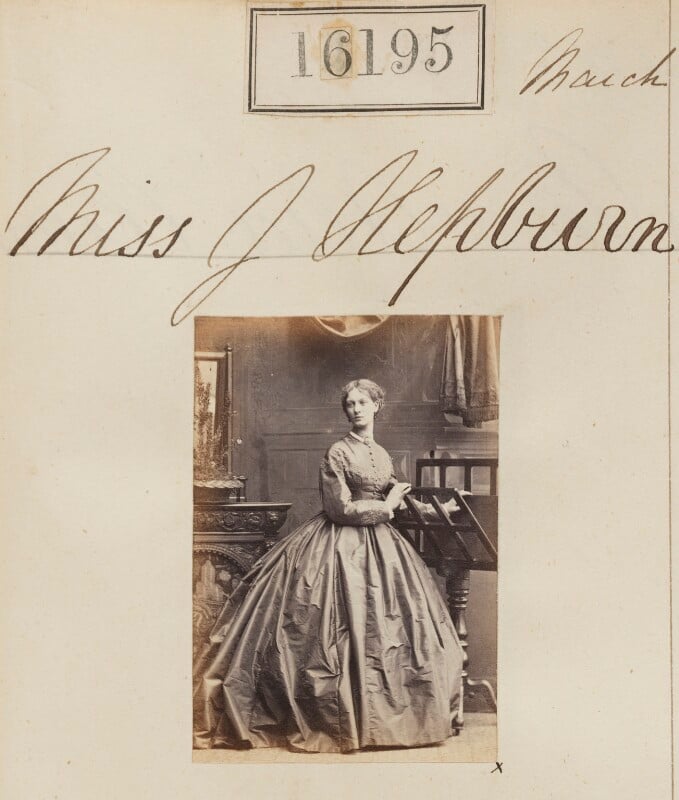 16195
March
Miss J Hepburn
x